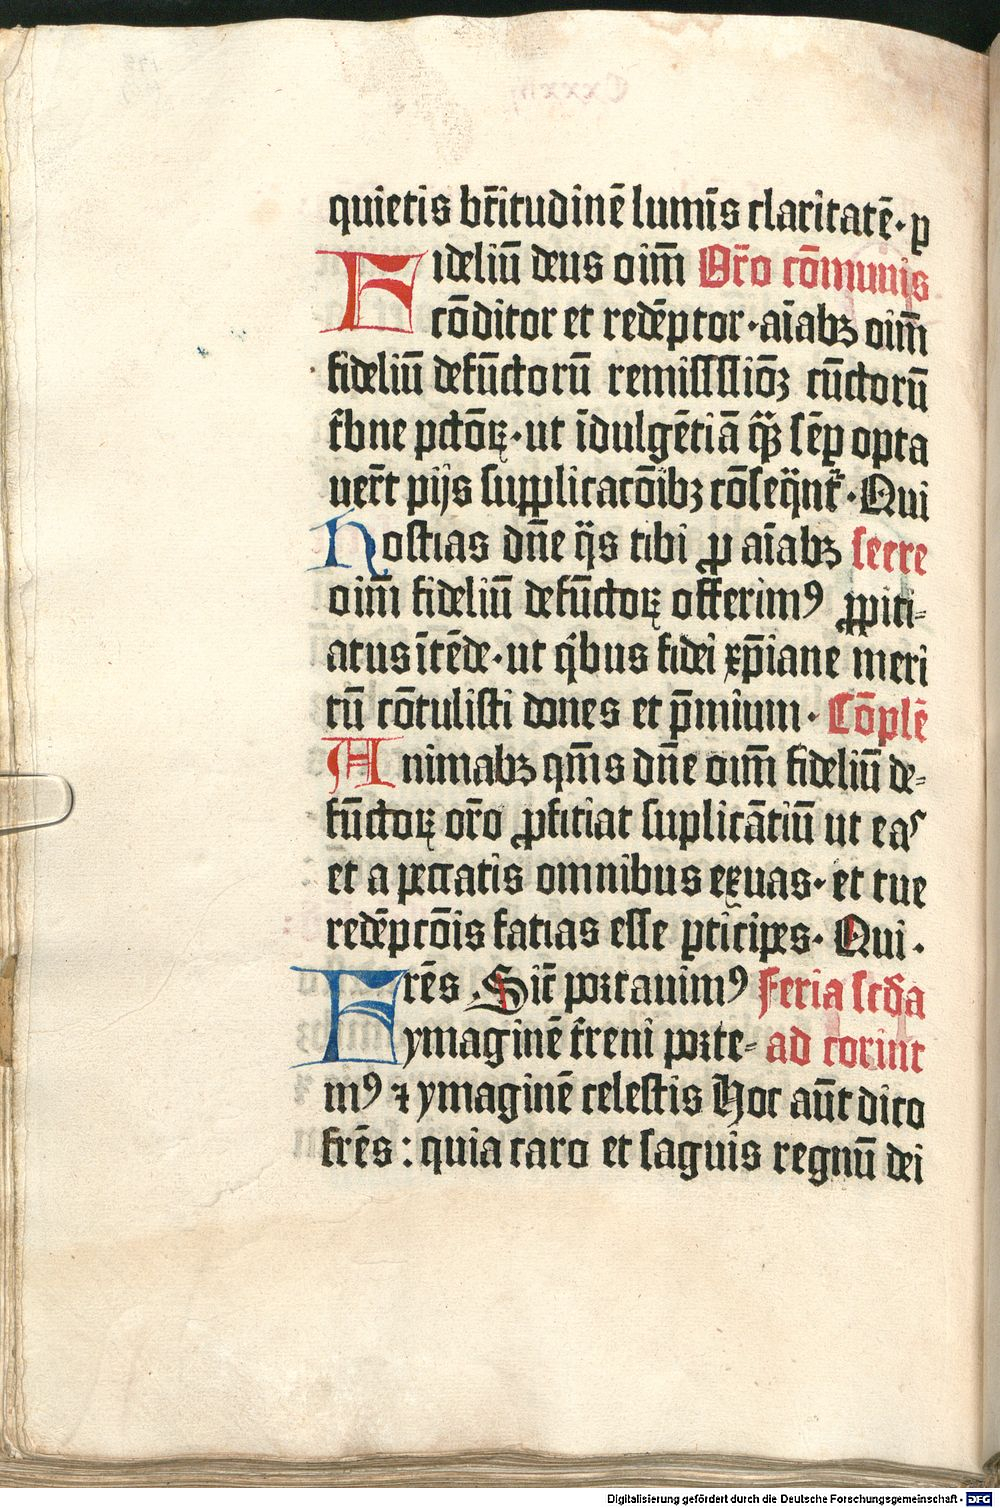 quietis br̄itudinē lumīs claritatē · ꝑ
Fideliū deus oim̄ Or̄o cōmunis
cōditor et redēptor · aīabꝫ oim̄
fideliū defūctorū remissſſiōꝫ cūctorū
t̄bne pctōꝝ · ut īdulgētiā q̄ꝫ sēꝑ opta
uer̄t pijs supplicacōibꝫ cōseq̄nt᷑ · Qui
Hostias dn̄e q̄s tibi ꝓ aīabꝫ secre
oim̄ fideliū defūctoꝝ offerimꝰ ꝓpiti⸗
atus ītēde · ut qͥbus fidei xp̄iane meri
tū cōtulisti dones et p̄mium · Cōplē
Animabꝫ qm̄s dn̄e oim̄ fideliū de⸗
fūctoꝝ or̄o ꝓfitiat suplicātiū ut eas
et a peccatis omnibus exuas · et tue
redēpcōis fatias esse ꝑticipes · Qui ·
Frēs Sic̄ portauimꝰ feria scd̄a
ymaginē treni porte⸗ ad corint
mꝰ ⁊ ymaginē celestis Hoc aūt dico
frēs : quia caro et saguis regnū dei
Digitalisierung gefördert durch die Deutsche Forschungsgemeinschaft - DFG